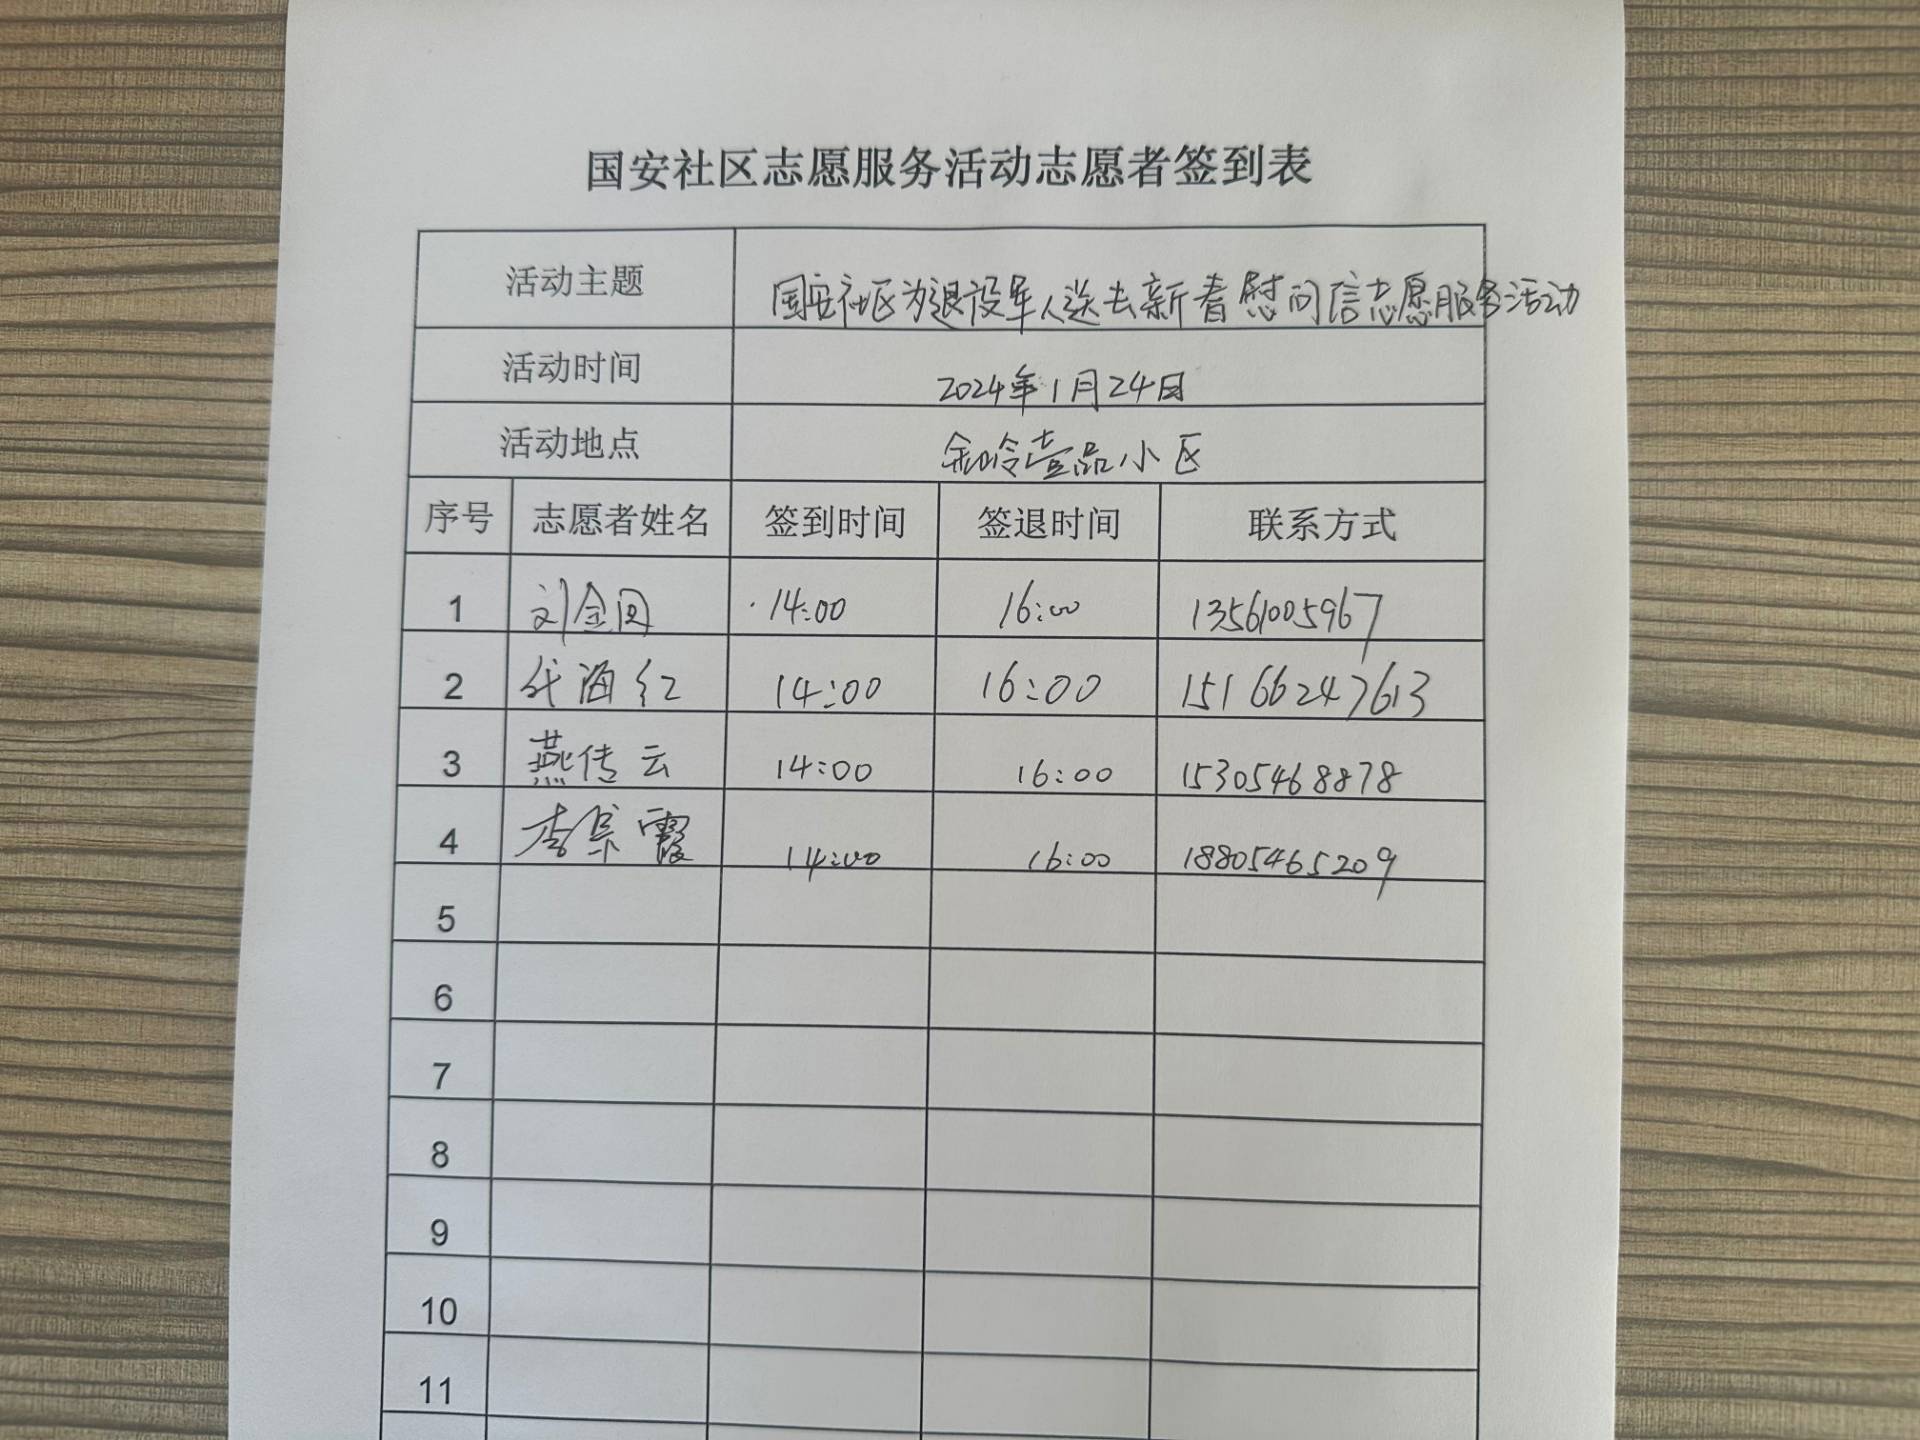 国安社区志愿服务活动志愿者签到表
活动主题 国安社区为退役军人送去新春慰问信志愿服务活动
活动时间 2024年1月24日
活动地点 壹品小区
序号 志愿者姓名 签到时间 签退时间 联系方式
1 刘金 14:00 16:00 13561005967
2 代海红 14:00 16:00 15166247613
3 燕传云 14:00 16:00 15305468878
4 李 霞 14:00 16:00 18805465209
5
6
7
8
9
10
11